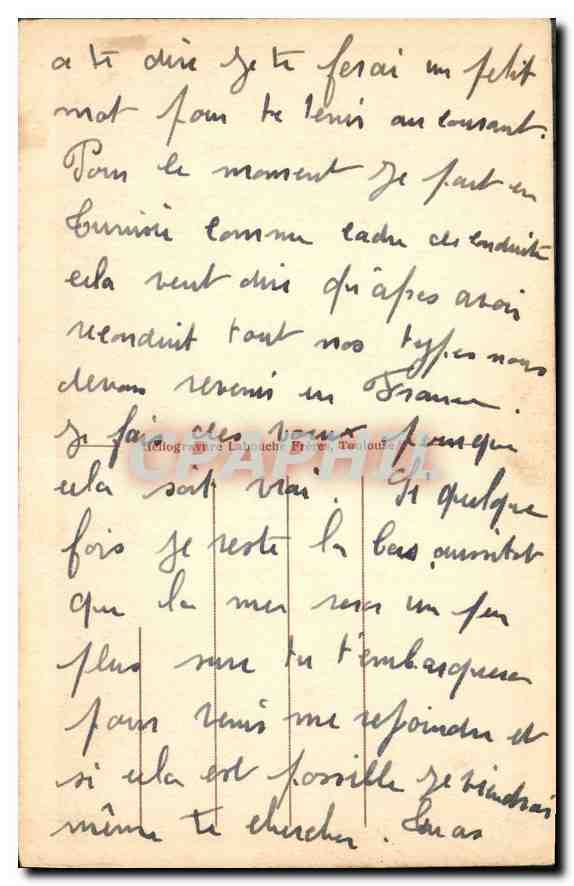 a te dire je te ferai un petit
mot pour te tenir au courant.
Pour le moment je part en
Tunisie comme cadre de conduite
cela veut dire qu'après avoir
reconduit tout nos types nous
devons revenir en France.
je fais des vœux pour que
Héliogravure Labouche Frères, Toulouse
CPAPHIL
cela soit vrai. Si quelque
fois je reste la bas, aussitot
que la mer sera un peu
plus sure tu t'embarqueras
pour venir me rejoindre et
si cela est possible je viendrai
même te chercher. Tu as